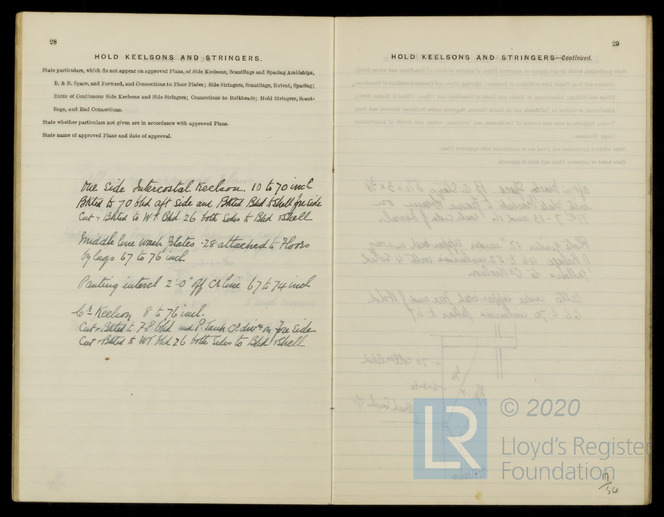 28
HOLD KEELSONS AND STRINGERS.
State particulars, which do not appear on approved Plans, of Side Keelsons, Scantlings and Spacing Amidships,
B. & E. Space, and Forward, and Connections to Floor Plates; Side Stringers, Scantlings, Extent, Spacing;
Butts of Continuous Side Keelsons and Side Stringers; Connections to Bulkheads; Hold Stringers, Scant-
lings, and End Connections.
State whether particulars not given are in accordance with approved Plans.
State name of approved Plans and date of approval.
One Side Intercostal Keelson. 10 to 70 incl
Bktd to 70 bhd aft side and Bktd Bhd & Shell fore side
Cut & Bktd to WT Bhd 26 both sides to Bhd & Shell.
Middle line wash plates .28 attached to Floors
by lugs 67 to 76 incl.
Panting intercl 2'-0" off Cr line 67 to 74 incl
Cr Keelson 8 to 76 incl.
Cut & Bktd to bhd and P. Tank Cr divn on fore side
Cut & Bktd to WT bhd 26 both sides to Bhd & Shell
29
HOLD KEELSONS AND STRINGERS—Continued.
LR
© 2020
Lloyd's Register
Foundation